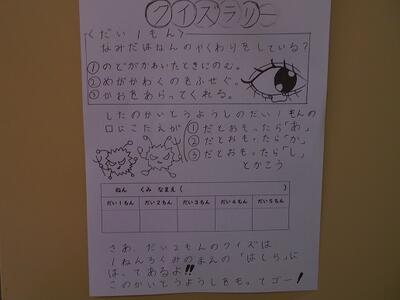 クイズラリー
〈だい1もん〉
なみだはなんのやくわりをしている?
①のどがかわいたときにのむ。
②めがかわくのをふせぐ。
③かおをあらってくれる。
したのかいとうようしのだい1もんの
口にこたえが
①だとおもったら「あ」
②だとおもったら「か」
③だとおもったら「し」
とかこう
ねん くみ なまえ( )
だい1もん だい2もん だい3もん だい4もん だい5もん
さあ、だい2もんのクイズは
1ねん5くみのまえの「はしら」に
はってあるよ!!
このかいとうようしをもってゴー!